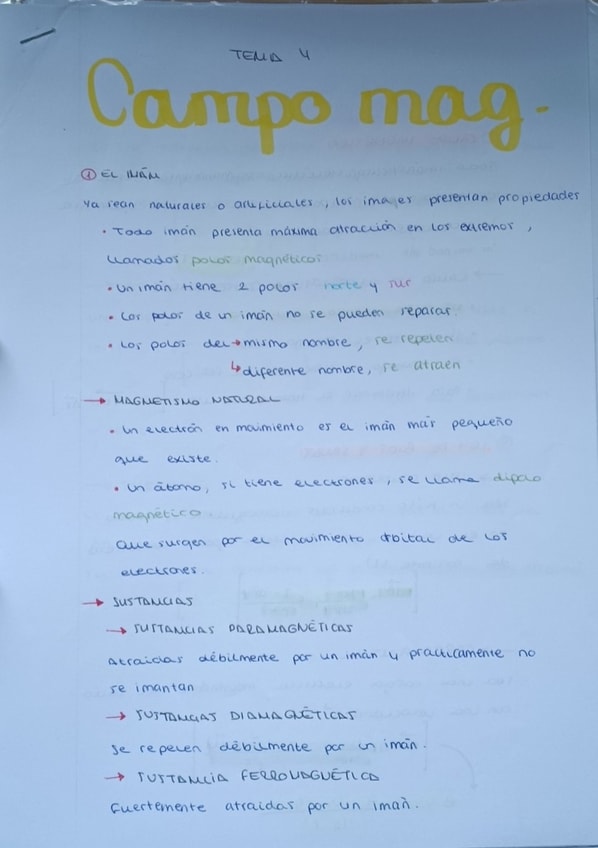 TEMA 4
Campo mag.
① EL IMÁN
Ya sean naturales o artificiales, los imanes presentan propiedades
• Todo imán presenta máxima atracción en los extremos,
llamados polos magnéticos
• Un imán tiene 2 polos norte y sur
• Los polos de un imán no se pueden separar.
• Los polos del → mismo nombre, se repelen
↳ diferente nombre, se atraen
→ MAGNETISMO NATURAL
• Un electrón en movimiento es el imán más pequeño
que existe.
• Un átomo, si tiene electrones, se llama dipolo
magnético.
Que surgen por el movimiento orbital de los
electrones.
→ SUSTANCIAS
→ SUSTANCIAS PARAMAGNÉTICAS
Atraidas débilmente por un imán y prácticamente no
se imantan
→ SUSTANCIAS DIAMAGNÉTICAS
Se repelen débilmente por un imán.
→ SUSTANCIA FERROMAGNÉTICA
Fuertemente atraidas por un imañ.